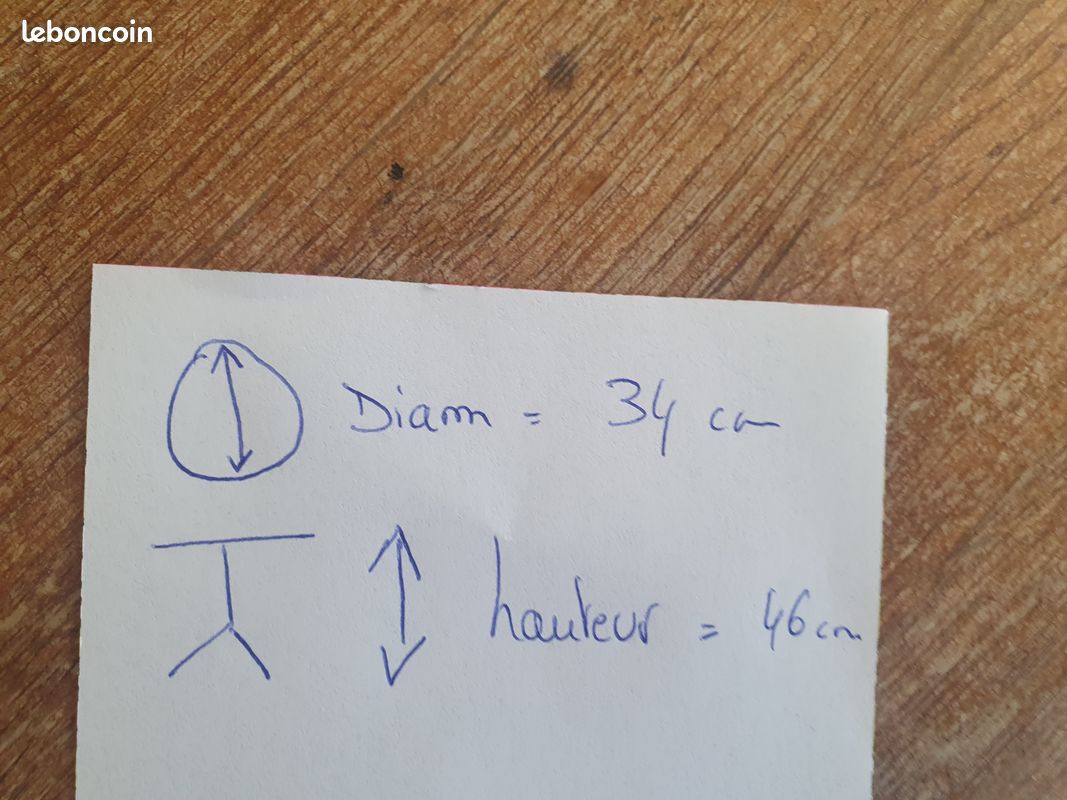 leboncoin
Diam = 34 cm
hauteur = 46 cm